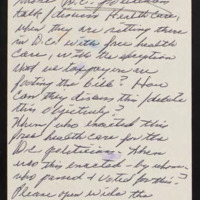 talk/discuss Health Care,
when they are sitting there
in D.C. with free health
care, with the exception
that us taxpayers are
footing the bill? How
can they discuss this/debate
this objectively?
When, who enacted this
free health care for the
D.C. politicians. When
was this enacted - by whom -
who passed & voted for this?
Please open wide the